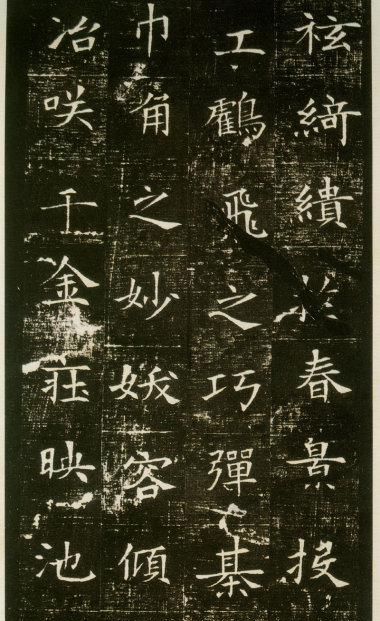 袨綺繢於春景投
工鸛飛之巧彈棊
巾角之妙娥容傾
冶咲千金莊映池